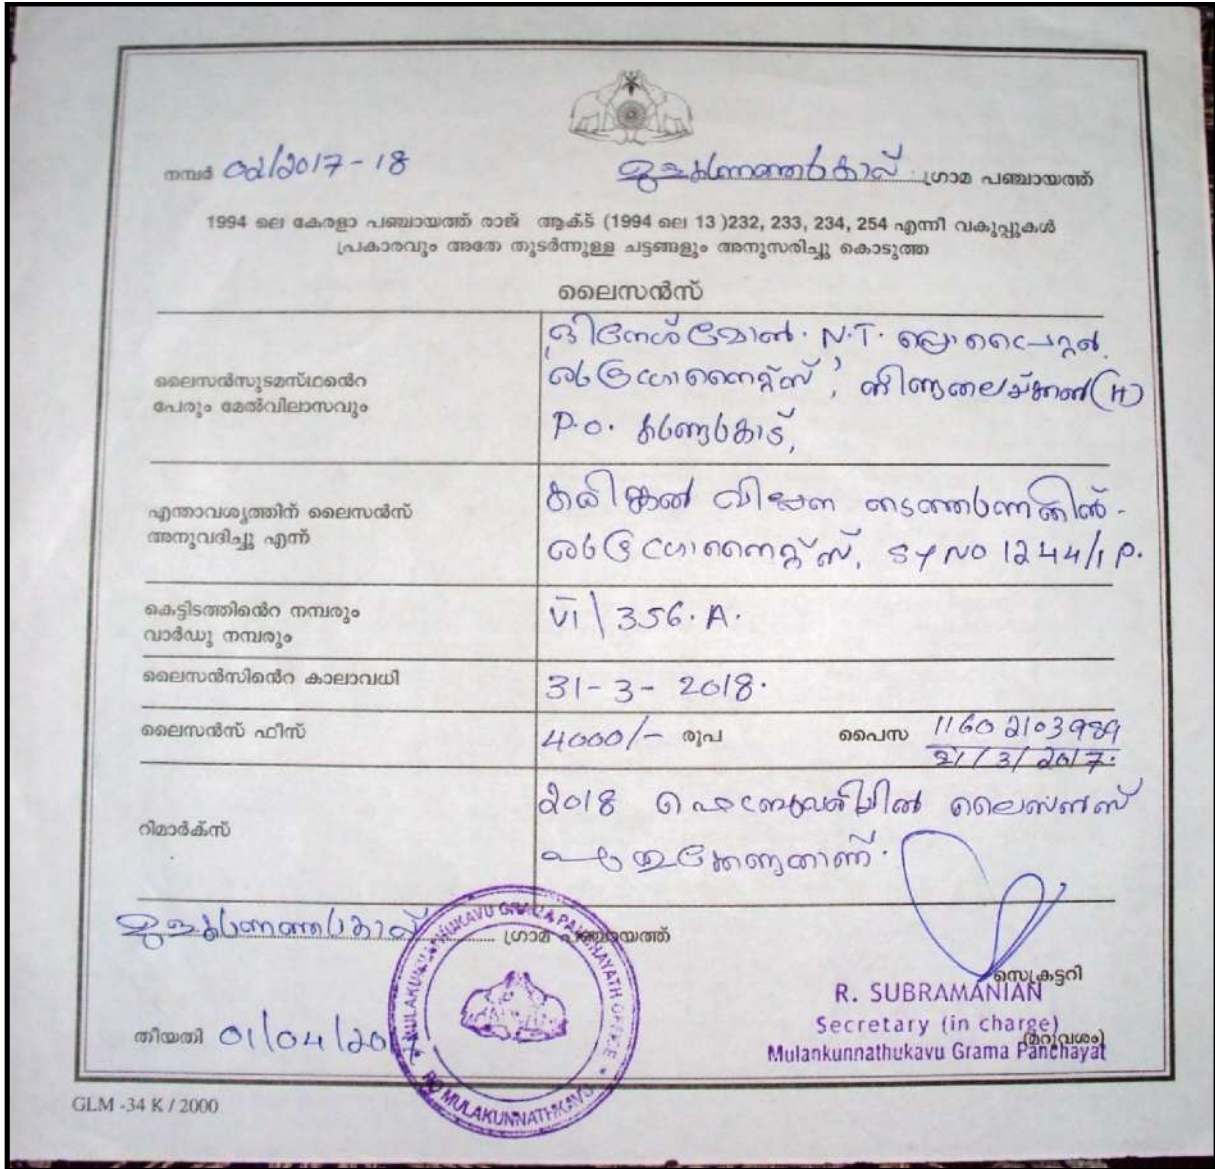 നമ്പർ 02/2017-18
മുളങ്കുന്നത്തുകാവ് ഗ്രാമ പഞ്ചായത്ത്
1994 ലെ കേരളാ പഞ്ചായത്ത് രാജ് ആക്ട് (1994 ലെ 13 )232, 233, 234, 254 എന്നീ വകുപ്പുകൾ
പ്രകാരവും അതേ തുടർന്നുള്ള ചട്ടങ്ങളും അനുസരിച്ചു കൊടുത്ത
ലൈസൻസ്
ലൈസൻസുടമസ്ഥൻെറ
പേരും മേൽവിലാസവും
N.T.
(H)
P.O.
എന്താവശ്യത്തിന് ലൈസൻസ്
അനുവദിച്ചു എന്ന്
കരിങ്കൽ വില്പന
SY NO 1244/1 P.
കെട്ടിടത്തിൻെറ നമ്പരും
വാർഡു നമ്പരും
VI \ 356. A.
ലൈസൻസിൻെറ കാലാവധി
31-3-2018.
ലൈസൻസ് ഫീസ്
4000/- രൂപ പൈസ 1160 2103989
21/3/2017.
റിമാർക്സ്
2018 ഫെബ്രുവരിയിൽ ലൈസൻസ്
പുതുക്കേണ്ടതാണ്.
മുളങ്കുന്നത്തുകാവ് ഗ്രാമ പഞ്ചായത്ത്
MULAKUNNATHUKAVU GRAMA PANCHAYATH OFFICE
PO MULAKUNNATHKAVU
സെക്രട്ടറി
R. SUBRAMANIAN
Secretary (in charge)
(മറുവശം)
Mulankunnathukavu Grama Panchayat
തിയതി 01/04/2017
GLM -34 K / 2000